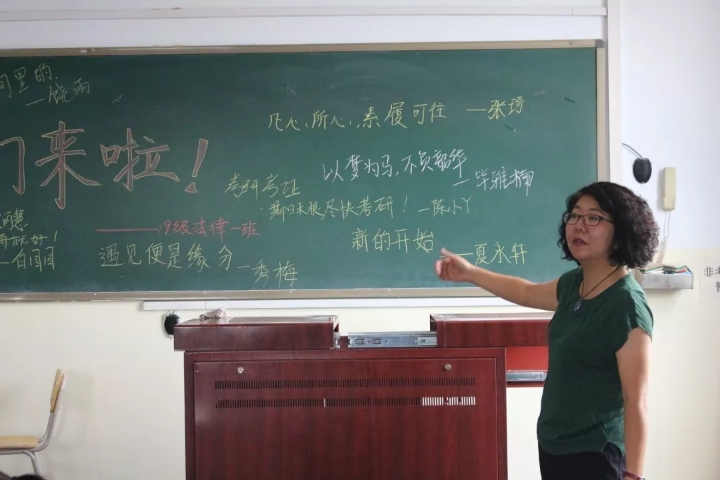 间里的
—饶雨
们来啦！
凡心所向,素履可往 —张琦
考研考证
以梦为马,不负韶华
—毕雅楠
尽快考研！—陈小丫
——19级法律一班
新的开始 —夏永轩
遇见便是缘分 —秀梅
就好！
—白园园